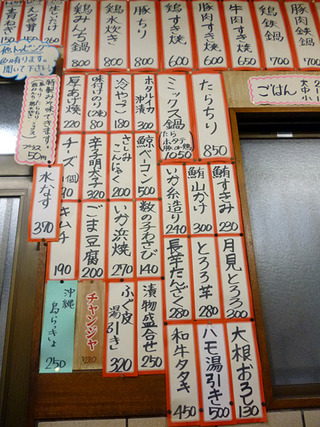 鶏鍋 700
鶏鉄鍋 700
牛肉すき焼 750
豚肉すき焼 600
鶏すき焼 600
豚ちり 800
鶏水炊き 800
鶏みんち鍋 800
ごはん
大
中
小
たらちり 850
ミックス鍋 1050
ホタテ沖漬 300
冷やっこ 180
味付のり 80
厚あげ焼 220
50円
鮪すきみ 230
鮪山かけ 300
いか糸造り 240
鯨ベーコン 500
さしみこんにゃく 200
辛子明太子 320
チーズ 1個 90
水なす 390
月見とろろ 300
とろろ芋 280
長芋たんざく 280
数の子わさび 140
いか浜焼 270
ごま豆腐 200
キムチ 190
大根おろし 130
ハモ湯引き 500
和牛タタキ 450
漬物盛合せ 250
ふぐ皮湯引き 320
チャンジャ
沖縄島らっきょ 250